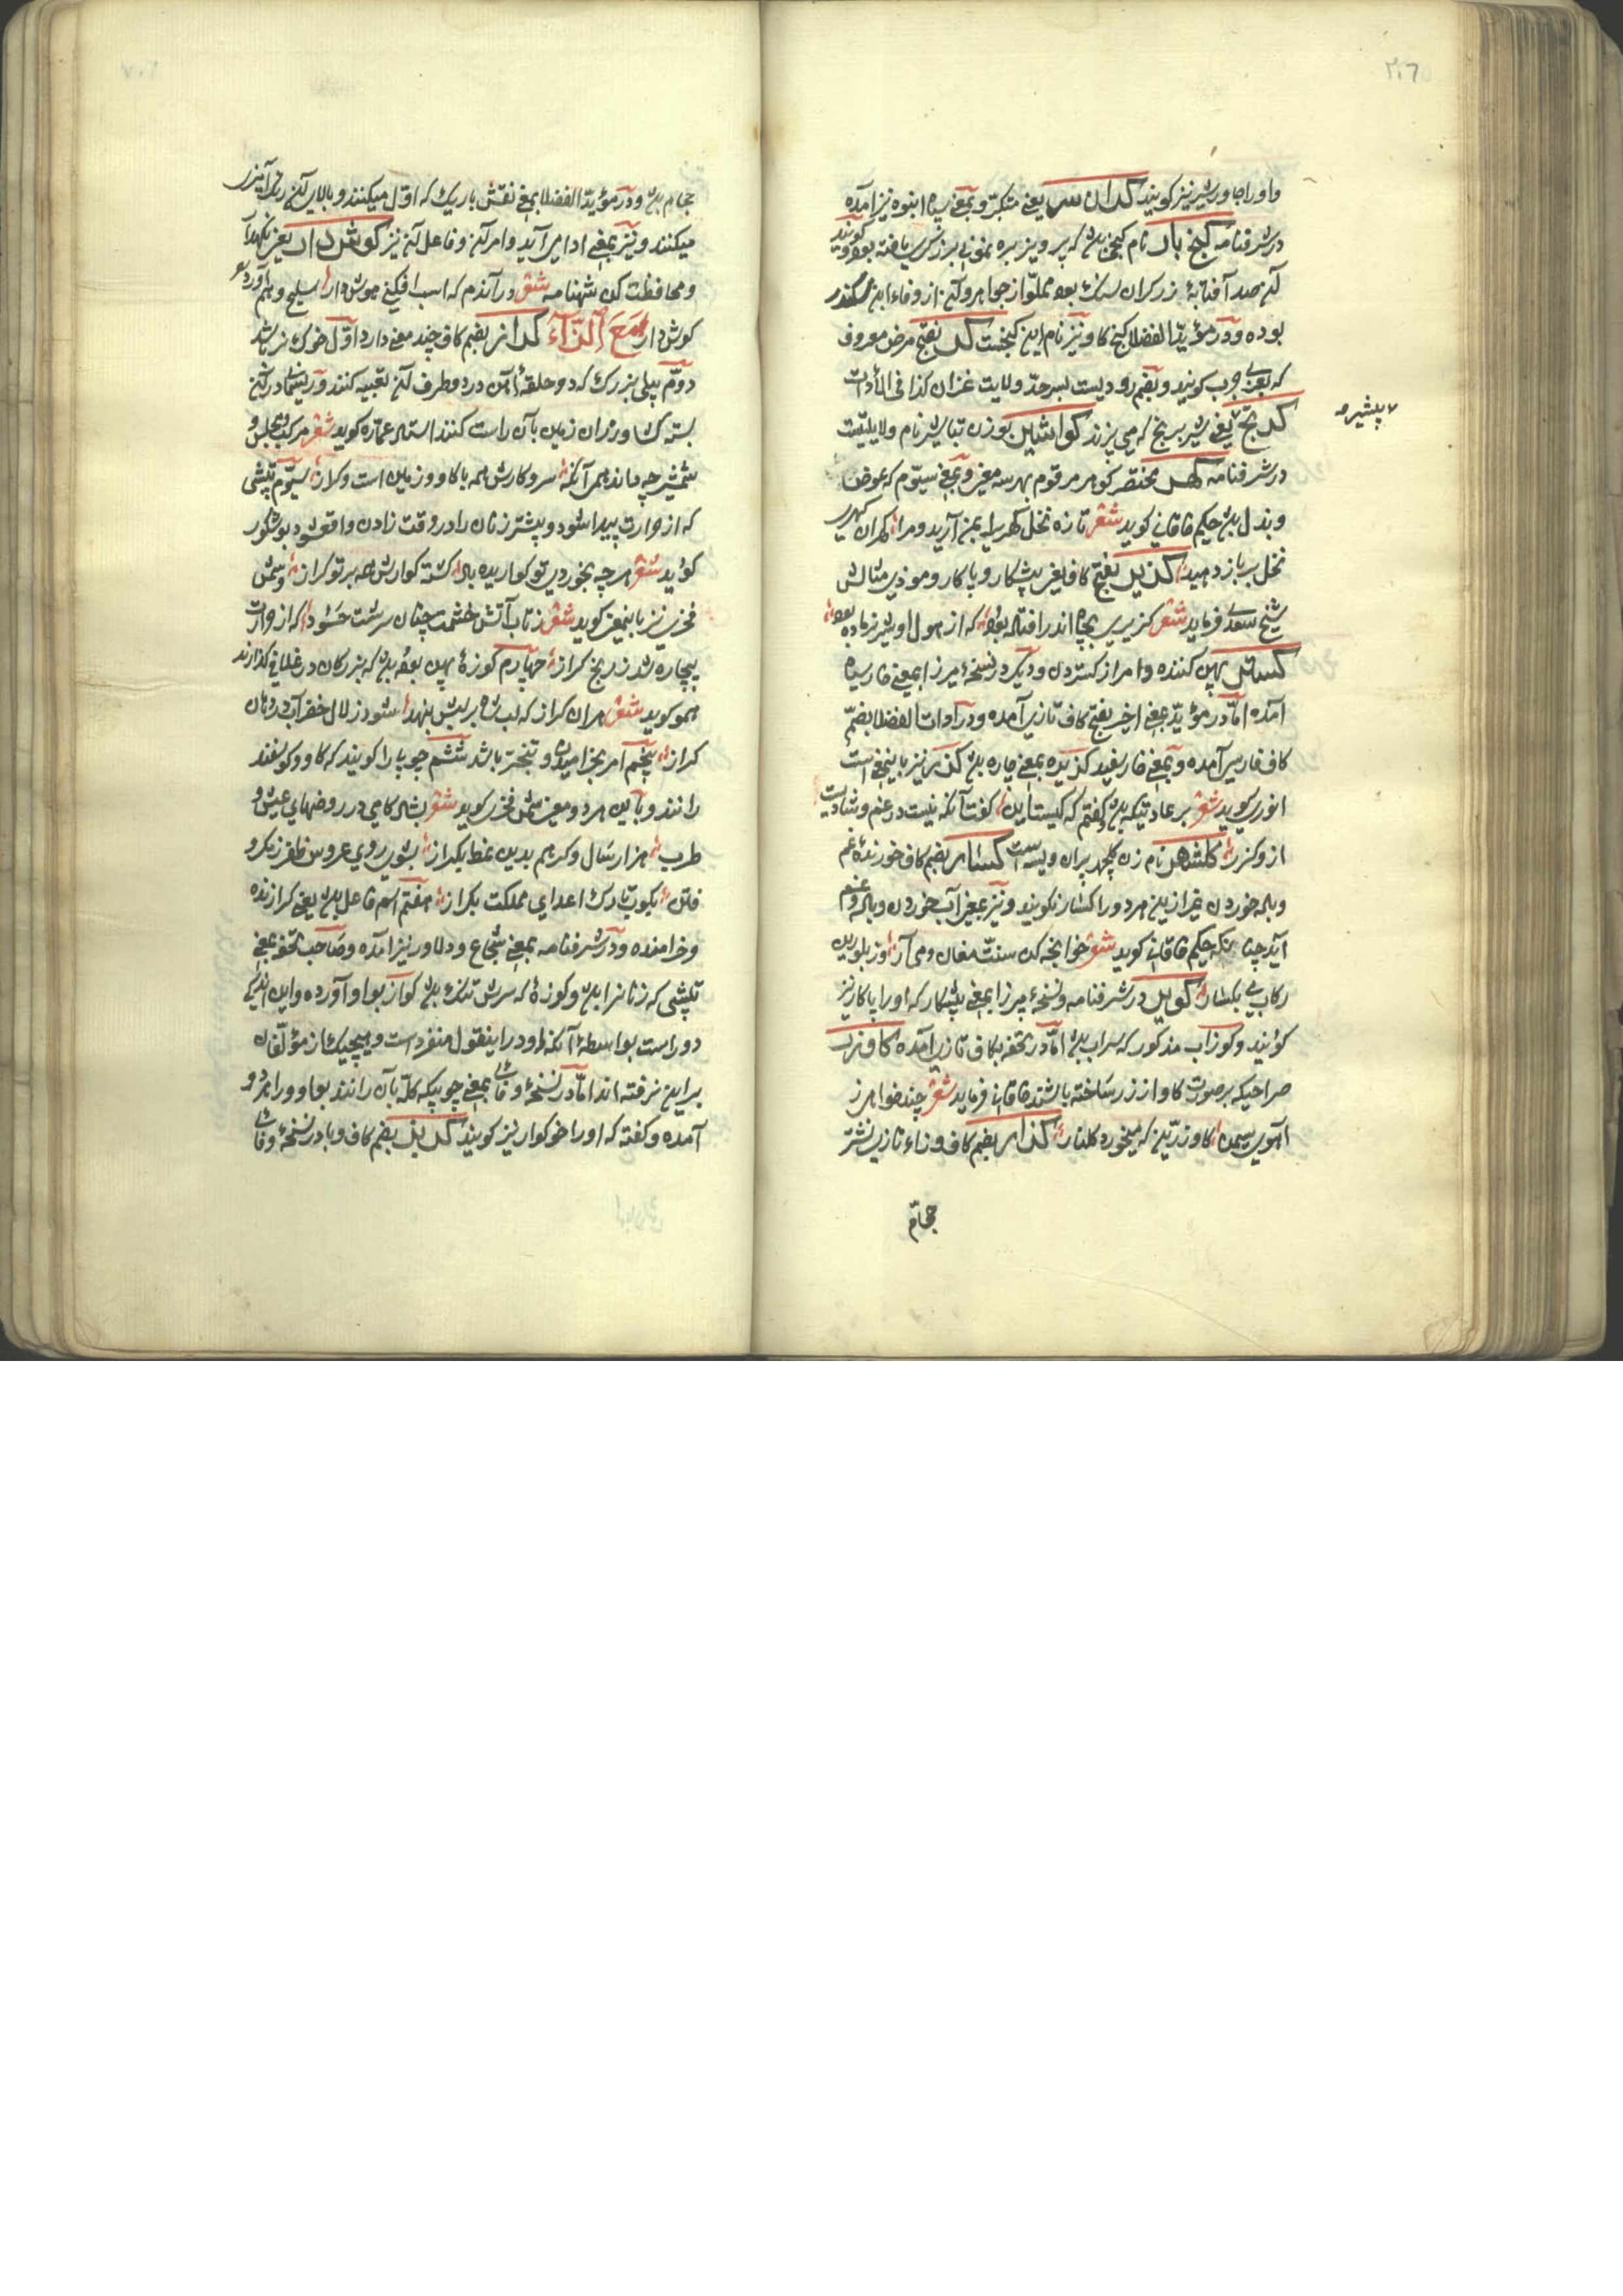 ٢٠٦
و او را جاورشیر نیز گویند کران سر یعنی متکبر و بمعنی سپاه انبوه نیز آمده
در شرفنامه گنج باد نام گنجی بود که پرویز بره نمونی برزگری یافته بود و گویند
که صد آفتابهٔ زر کران سنگ بود مملو از جواهر و آن از وفاء این سکندر
بوده و در مؤید الفضلا گنج کاو نیز نام این گنجست کر بفتح مرض معروف
که بعربی جرب گویند و بضم رودیست بسرحد ولایت غزان کذا فی الأدات
یعنی شیر برنج که می پزند کواشیر بوزن تباشیر نام ولایتیست
پیشیر
در شرفنامه کهر مختصر گوهر مرقوم بهر سه معنی و بمعنی سیوم که عوض
و بدل بود حکیم خاقانی گوید شعر تازه نخل کهری بمن آرید و مرا کهران کهری
نخل بر باز دهید کزیر بفتح کاف یعنی پیشکار و پاکار و موذی مثالش
شیخ سعدی فرماید شعر کزیری بچاه اندر افتاده بود که از هول او شیر نر ماده بود
کستر پهن کننده و امر از گستردن و دیگر در نسخهٔ میرزا بمعنی خار سیاه
آمده اما در مؤید بمعنی اخیر بفتح کاف تازی آمده و در آدات الفضلا بضم
کاف فارسی آمده و بمعنی خار سفید گزیده بمعنی چاره بود گزر نیز باینمعنی است
انوری گوید شعر بر عادتیکه بود گفتم که کیست این گفت آنکه نیست در غم و شادیت
از و گزر گلشهر نام زن پیران ویسه است کسار بضم کاف خورندهٔ غم
و باده خوردن غیر ازین مرد و را کسار نگویند و نیز بمعنی آب خوردن و باده و غم
آید چنانکه حکیم خاقانی گوید شعر خوانچه کن سنت مغان می آر وز بلورین
رکاب می بکسار کویر در شرفنامه و نسخهٔ میرزا بمعنی پیشکار که او را پاکار نیز
گویند و کوزاب مذکور که سراب بود اما در تحفه بکاف تازی آمده کاوزر
صراحیکه بر صورت کاو از زر ساخته باشند خاقانی فرماید شعر چند خواهی ز
آهوی سیمین کاو زرین که میخورد گلنار گذار بضم کاف و زاء تازی نشتر
حجام
حجام بود و در مؤید الفضلا بمعنی نقش باریک که اول میکنند و بالای آن رنگ آمیزی
میکنند و نیز بمعنی ادا می آید و امر آن و فاعل آن نیز کوش دار یعنی نگهدار
و محافظت کن شهنامه شعر در آندم که اسب افکنی هوش دار سلیح و
کوش دار مع الزآء کراز بضم کاف چند معنی دارد اول خوک نر باشد
دوم بیلی بزرگ که دو حلقهٔ آهن در دو طرف آن تعبیه کنند و ریسمان در آن
بسته کشاورزان زمین بآن راست کنند استاد عماره گوید شعر
شمشیر چه داند همی آنکه سر و کارش همه با کاو و زمین است و کراز سیوم تپشی
که از حرارت پیدا شود و بیشتر زنان را در وقت زادن واقع شود بوشکور
گوید شعر هرچه بخوردی تو گوارنده باد کشته گوارش همه بر تو کراز و شمس
فخری نیز باینمعنی گوید شعر ز تاب آتش خشمت چنان سرشت حسود که از حرارت
بیچاره شد ز رنج کراز چهارم کوزهٔ پهن بود که بزرکان در غلاف گذارند
همو گوید شعر هران کراز که لب شاه بر لبش بنهد شود زلال خضر آب در دهان
کراز پنجم امر بخرامیدن و تبختر باشد ششم چوبی را گویند که کاو و گوسفند
رانند و باین هر دو معنی شمس فخری گوید شعر بشاد کامی در روضهای عیش و
طرب هزار سال دگر هم بدین نمط بکراز بشوی روی عروس ظفر ز گرد
فتن بکوب تارک اعدای مملکت بکراز هفتم اسم فاعل بود یعنی گرازنده
و خرامنده و در شرفنامه بمعنی شجاع و دلاور نیز آمده و صاحب تحفه بمعنی
تپشی که زنانرا بود و کوزهٔ که سرش تنک بود کواز بواو آورده و این اندکی
دور است بواسطهٔ آنکه او در اینقول منفرد است و هیچیک از مؤلفان
برین نرفته اند اما در نسخهٔ وفائی بمعنی چوبیکه گله بآن رانند بواو و را هر دو
آمده و گفته که او را خرکواز نیز گویند کربز بضم کاف و با در نسخهٔ وفائی